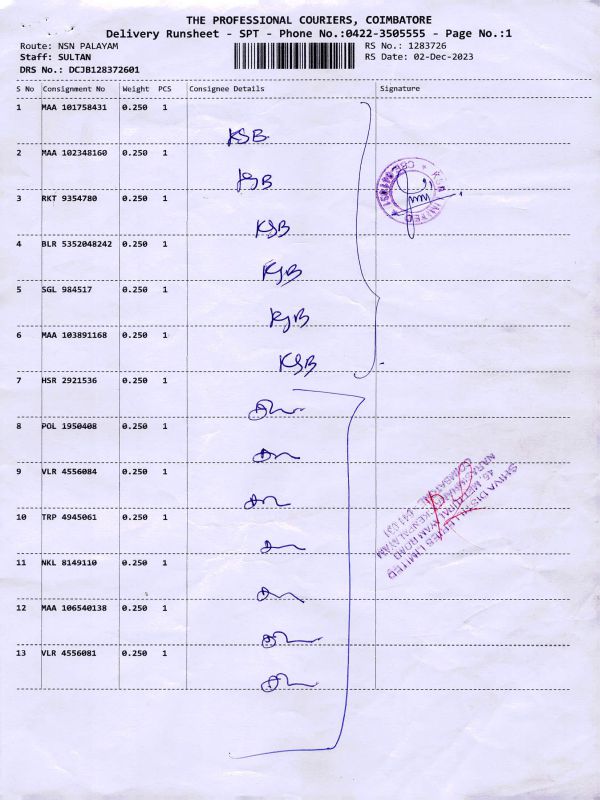 THE PROFESSIONAL COURIERS, COIMBATORE
Delivery Runsheet - SPT - Phone No.:0422-3505555 - Page No.:1
Route: NSN PALAYAM RS No.: 1283726
Staff: SULTAN RS Date: 02-Dec-2023
DRS No.: DCJB128372601
S No Consignment No Weight PCS Consignee Details Signature
1 MAA 101758431 0.250 1
KSB
2 MAA 102348160 0.250 1
KSB
3 RKT 9354780 0.250 1
KSB
4 BLR 5352048242 0.250 1
KSB
5 SGL 984517 0.250 1
KSB
6 MAA 103891168 0.250 1
KSB
7 HSR 2921536 0.250 1
8 POL 1950408 0.250 1
9 VLR 4556084 0.250 1
10 TRP 4945061 0.250 1
11 NKL 8149110 0.250 1
12 MAA 106540138 0.250 1
13 VLR 4556081 0.250 1
SHIVA DISTILLERIES LIMITED